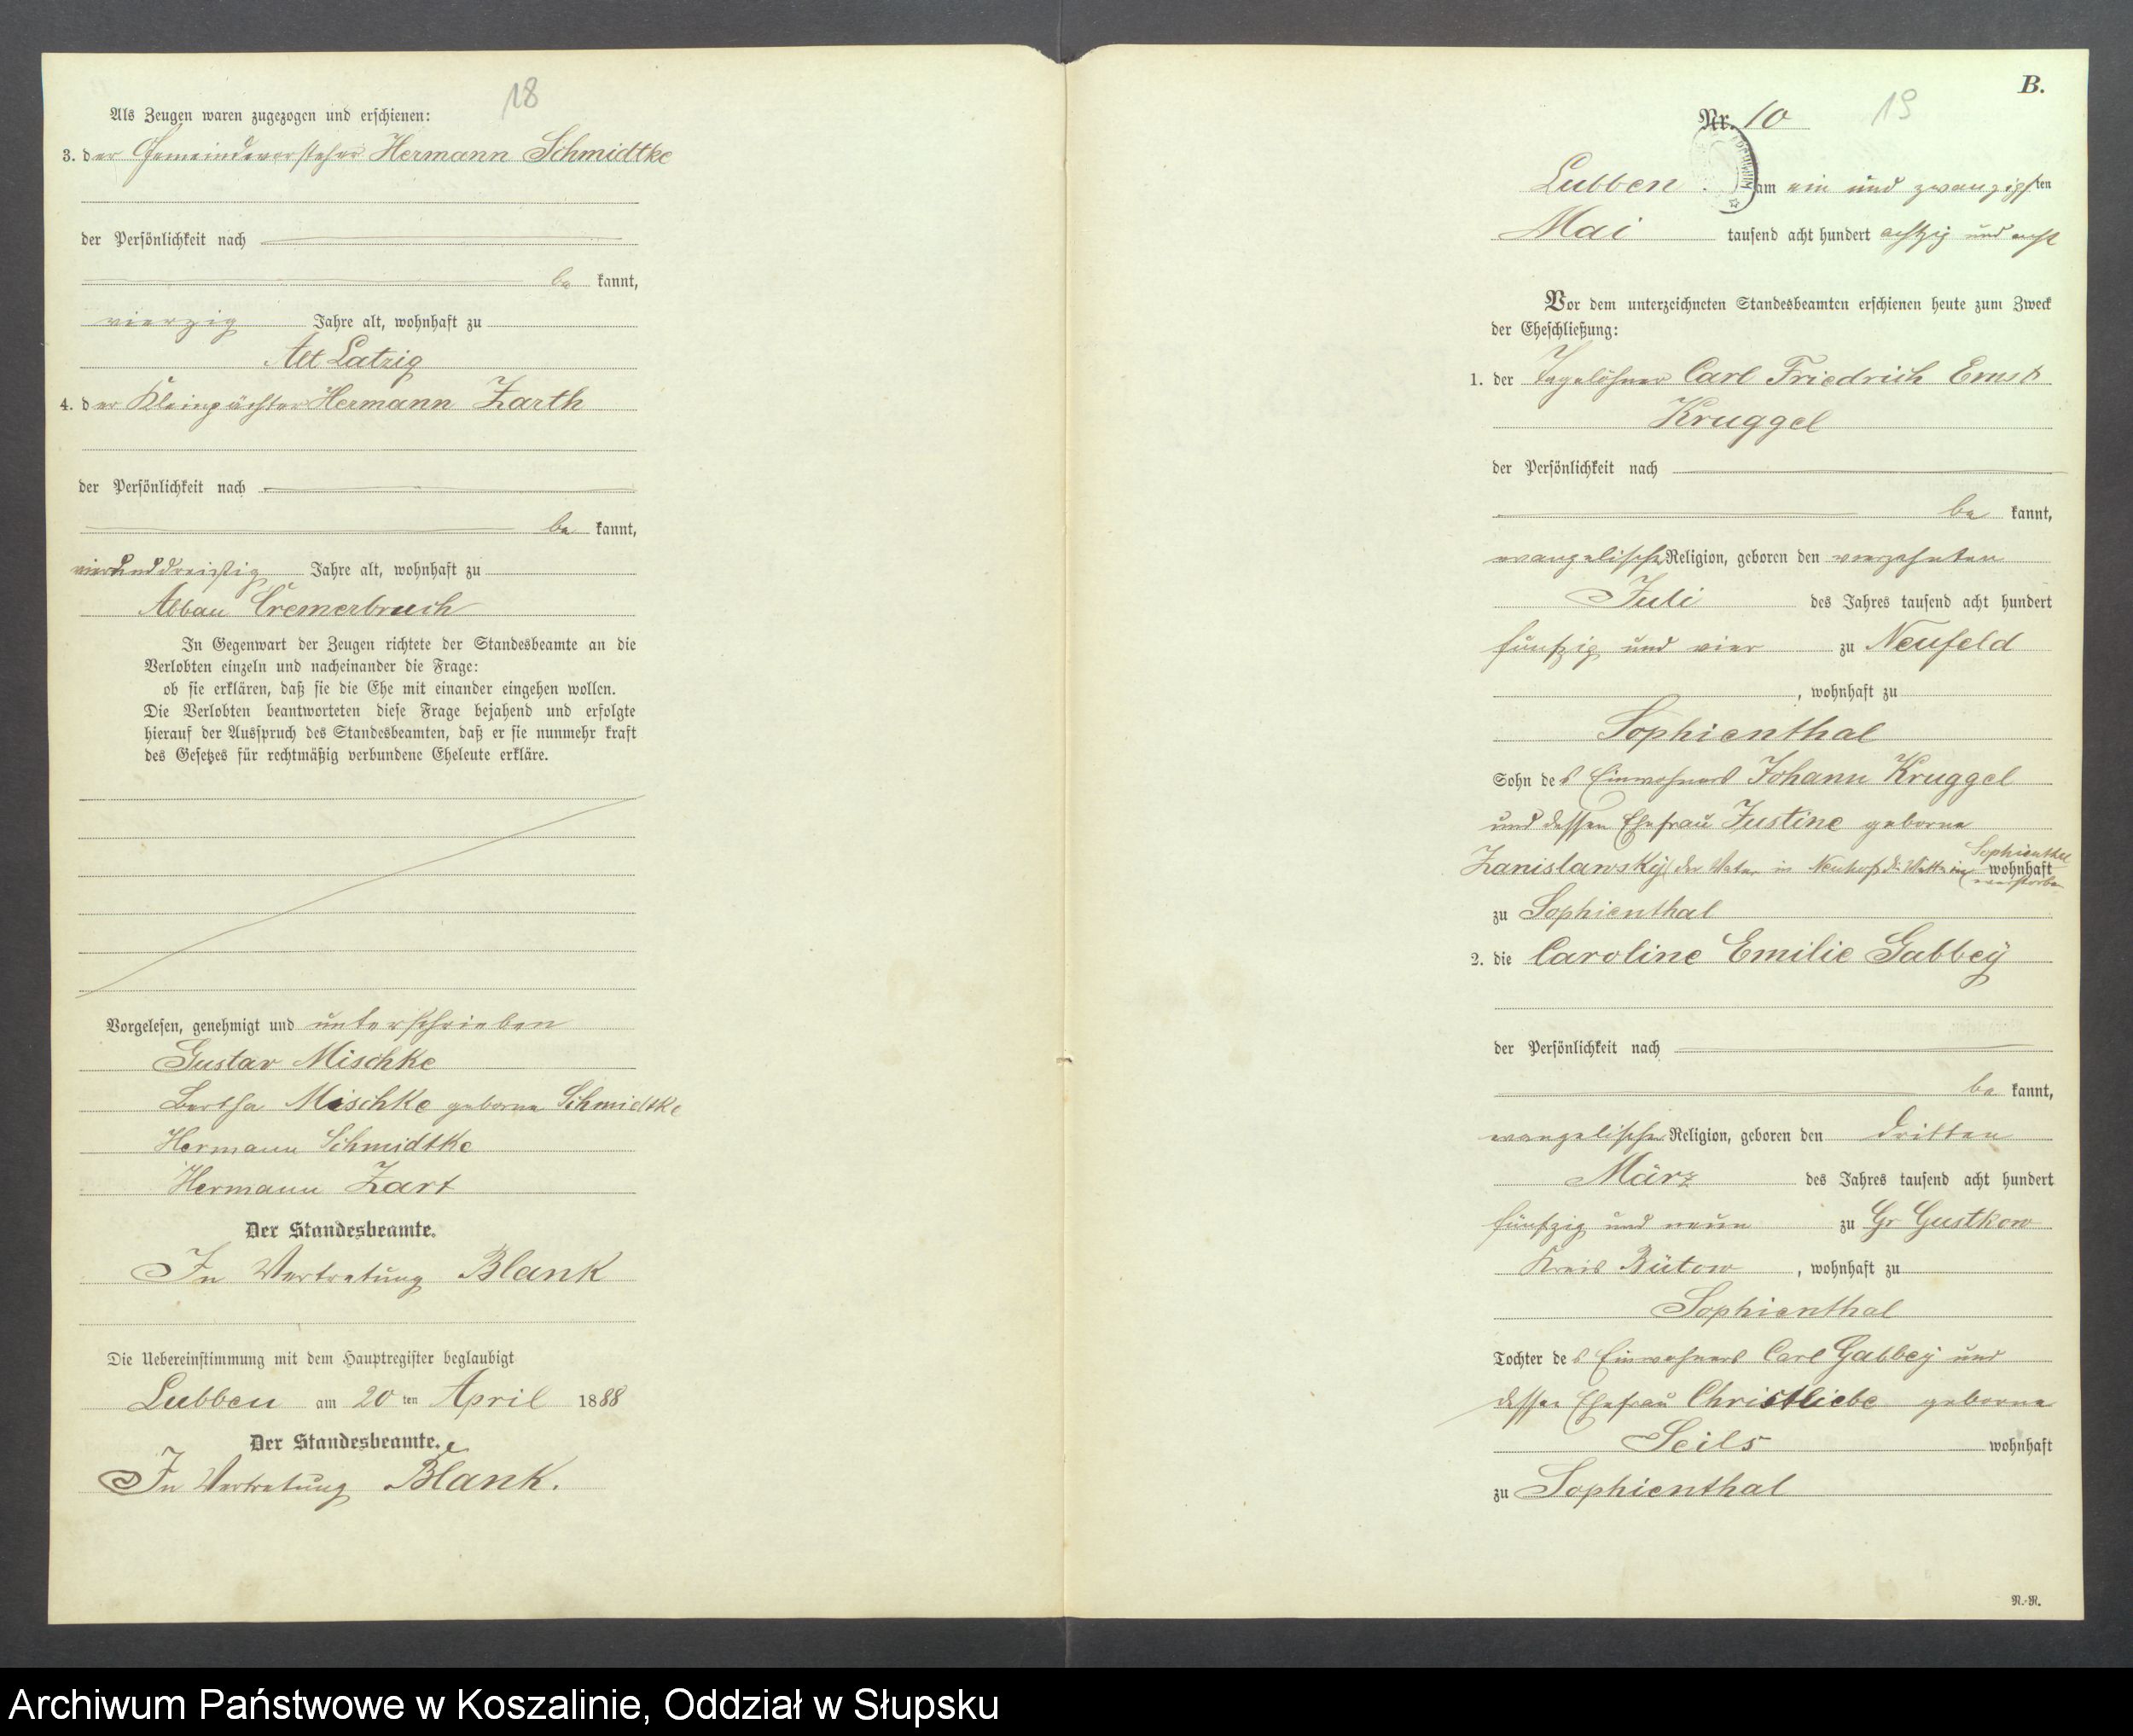 18
Als Zeugen waren zugezogen und erschienen:
3. der Gemeindevorsteher Hermann Schmidtke
der Persönlichkeit nach
be kannt,
vierzig Jahre alt, wohnhaft zu
Alt Latzig
4. der Kleinpächter Hermann Zarth
der Persönlichkeit nach
be kannt,
vierunddreißig Jahre alt, wohnhaft zu
Abbau Cremerbruch
In Gegenwart der Zeugen richtete der Standesbeamte an die
Verlobten einzeln und nacheinander die Frage:
ob sie erklären, daß sie die Ehe mit einander eingehen wollen.
Die Verlobten beantworteten diese Frage bejahend und erfolgte
hierauf der Ausspruch des Standesbeamten, daß er sie nunmehr kraft
des Gesetzes für rechtmäßig verbundene Eheleute erkläre.
Vorgelesen, genehmigt und unterschrieben
Gustav Mischke
Bertha Mischke geborne Schmidtke
Hermann Schmidtke
Hermann Zart
Der Standesbeamte.
In Vertretung Blank
Die Uebereinstimmung mit dem Hauptregister beglaubigt
Lubben am 20 ten April 1888
Der Standesbeamte.
In Vertretung Blank.
B.
Nr. 10 19
Lubben am ein und zwanzigsten
Mai tausend acht hundert achtzig und acht
Vor dem unterzeichneten Standesbeamten erschienen heute zum Zweck
der Eheschließung:
1. der Tagelöhner Carl Friedrich Ernst
Kruggel
der Persönlichkeit nach
be kannt,
evangelischer Religion, geboren den vierzehnten
Juli des Jahres tausend acht hundert
fünfzig und vier zu Neufeld
, wohnhaft zu
Sophienthal
Sohn des Einwohners Johann Kruggel
und dessen Ehefrau Justine geborne
Zanislawsky der Vater in Neuhof, die Mutter in Sophienthal wohnhaft
verstorben
zu Sophienthal
2. die Caroline Emilie Gabbey
der Persönlichkeit nach
be kannt,
evangelischer Religion, geboren den dritten
März des Jahres tausend acht hundert
fünfzig und neun zu Gr Gustkow
Kreis Bütow , wohnhaft zu
Sophienthal
Tochter des Einwohners Carl Gabbey und
dessen Ehefrau Christliebe geborne
Seils wohnhaft
zu Sophienthal
R.-R.
Archiwum Państwowe w Koszalinie, Oddział w Słupsku